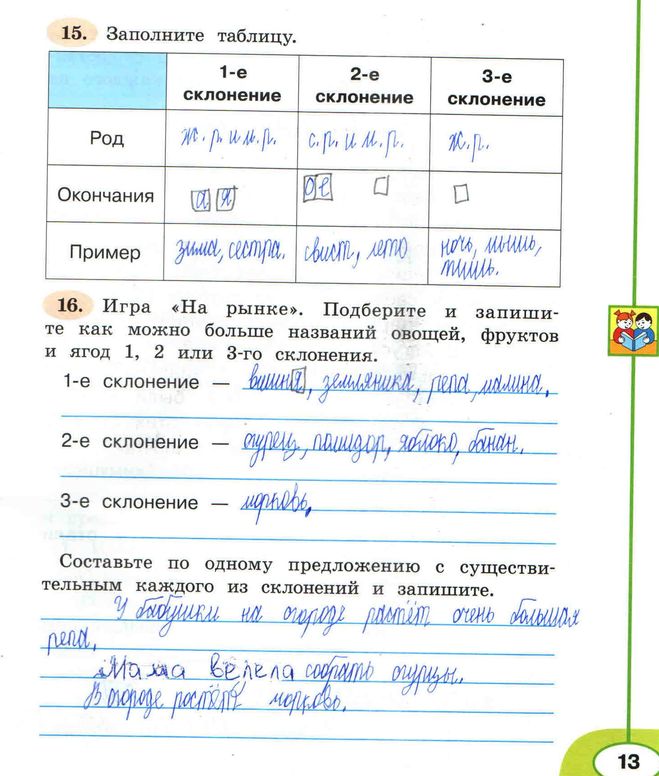 15. Заполните таблицу.
1-е склонение 2-е склонение 3-е склонение
Род ж. р. и м. р. с. р. и м. р. ж. р.
Окончания а я о е
Пример зима, сестра. свист, лето ночь, мышь, тишь.
16. Игра «На рынке». Подберите и запиши-
те как можно больше названий овощей, фруктов
и ягод 1, 2 или 3-го склонения.
1-е склонение — вишня, земляника, репа, малина.
2-е склонение — огурец, помидор, яблоко, банан.
3-е склонение — морковь.
Составьте по одному предложению с существи-
тельным каждого из склонений и запишите.
У бабушки на огороде растёт очень большая
репа.
Мама велела собрать огурцы.
В огороде ростёт морковь.
13